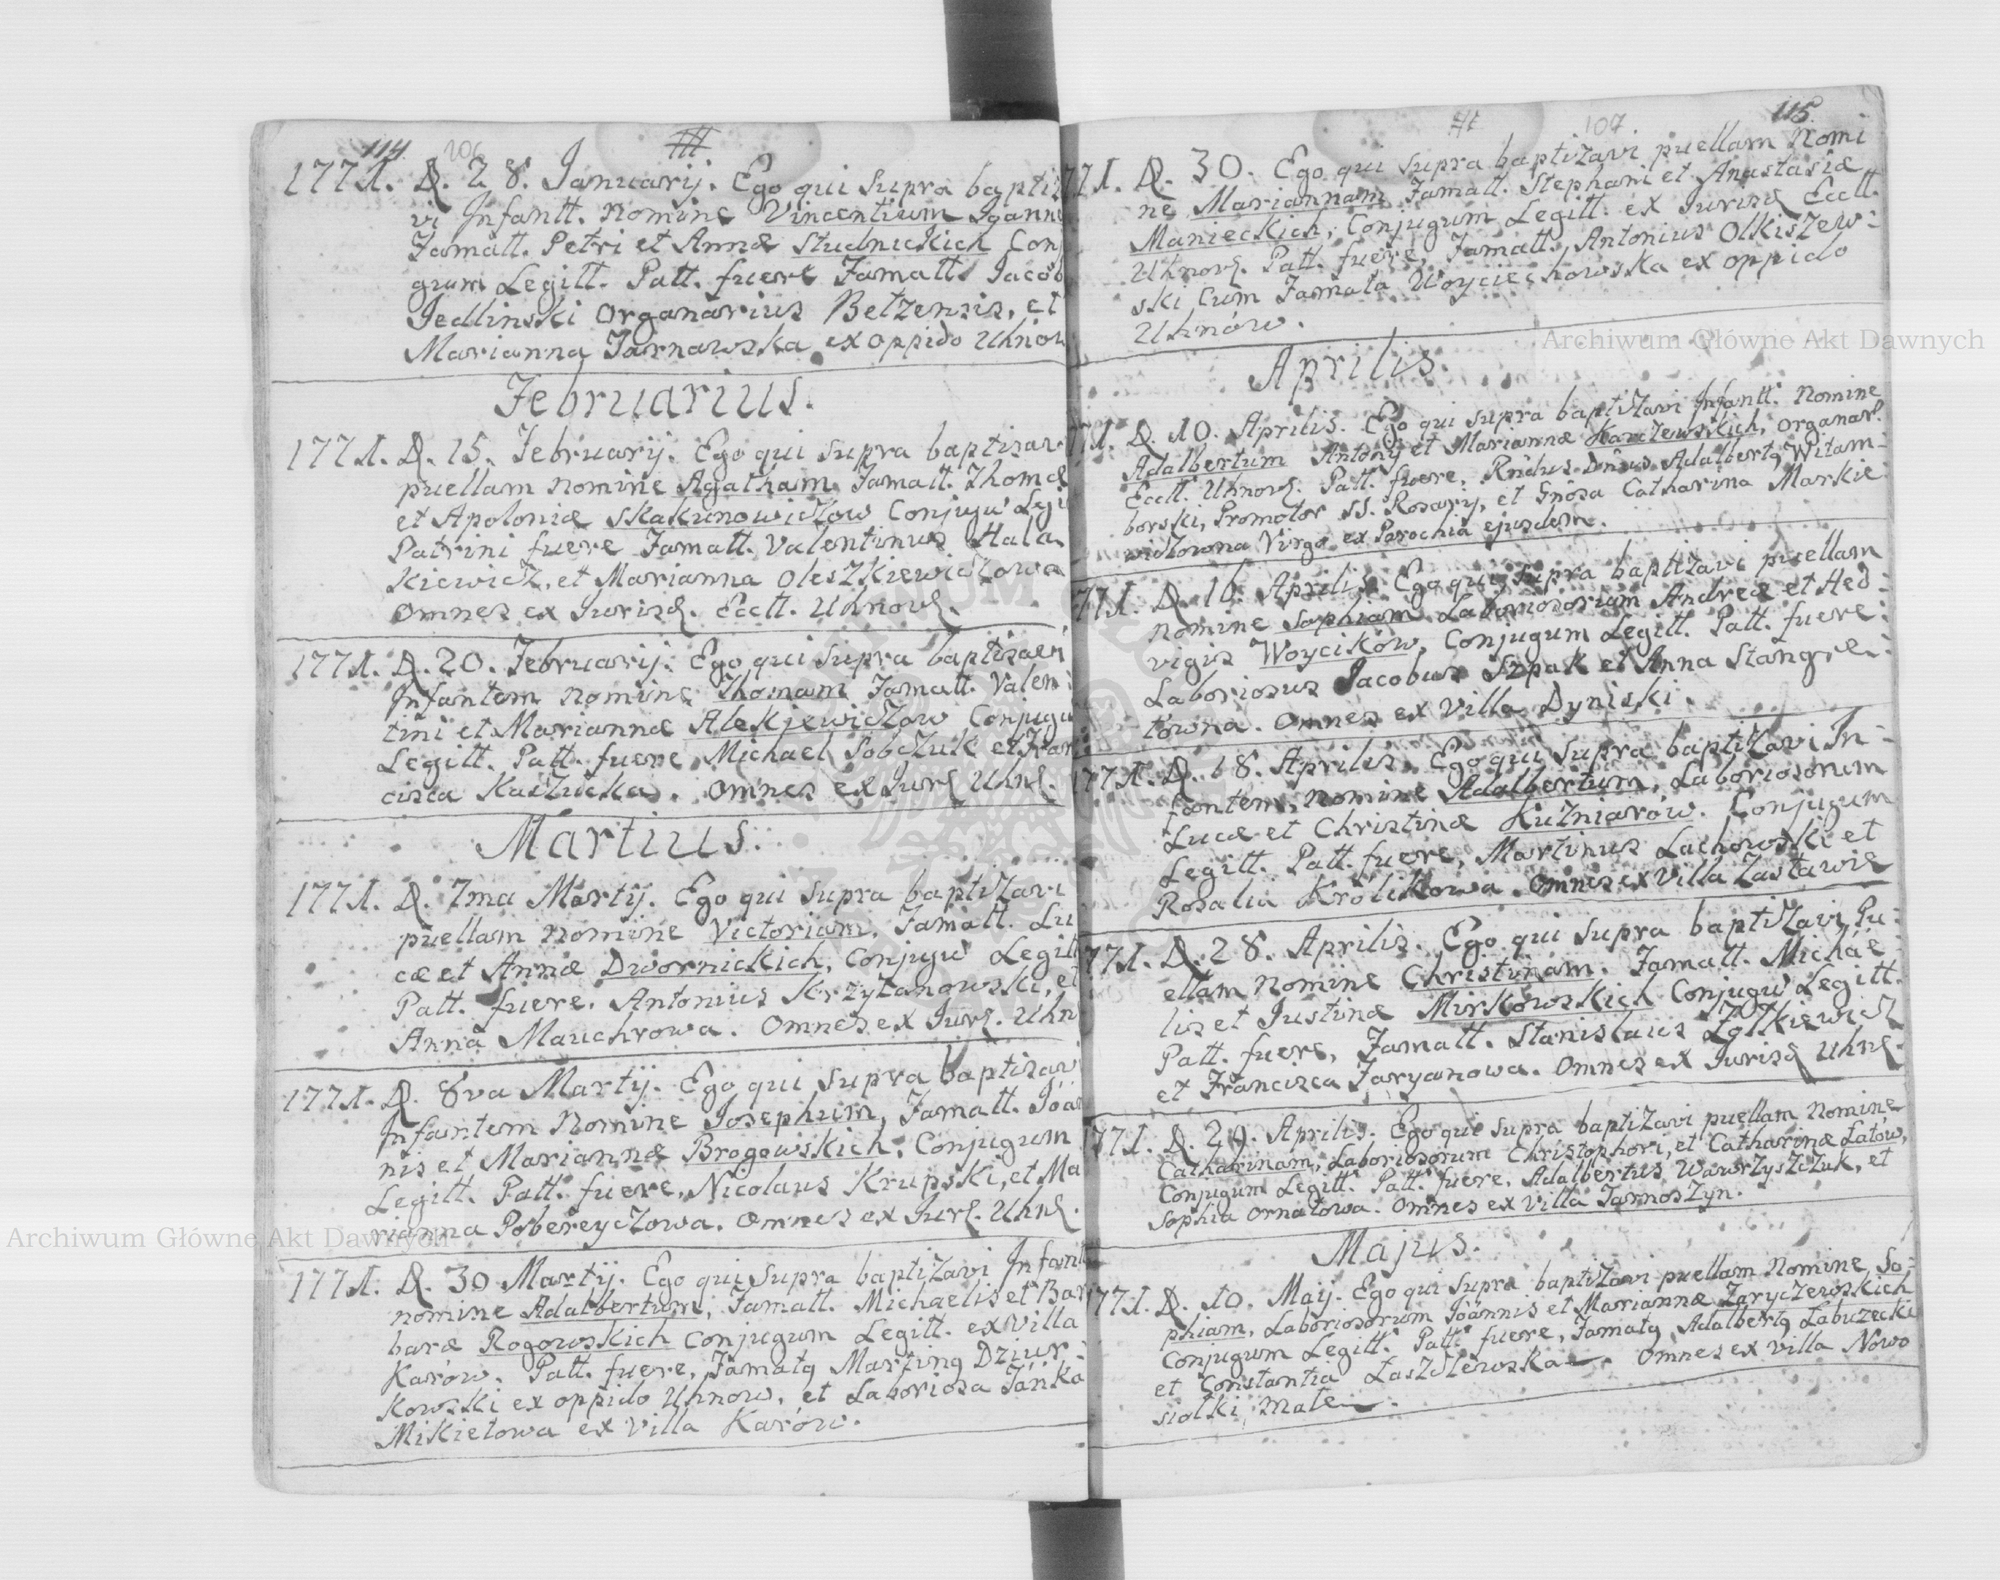 114 106
1771. D. 28. Januarij. Ego qui supra baptiza
vi Infantt. nomine Vincentium Joanne
Famatt. Petri et Annæ Studnickich Con
gum Legitt. Patt. fuere Famatt. Jacob
Jedlinski Organarius Betzensis, et
Marianna Tarnawska ex oppido Uhnow
Februarius.
1771. D. 15. Februarij. Ego qui supra baptisav
puellam nomine Agatham Famatt. Thomæ
et Apoloniæ Skakunowiczow Conjugu Legi
Patrini fuere Famatt. Valentinus Hala
kiewicz, et Marianna Oleszkiewiczowa
Omnes ex Jurisd. Eccl. Uhnov.
1771. D. 20. Februarij. Ego qui supra baptisavi
Infantem nomine Thomam Famatt. Valen
tini et Mariannæ Alekjewiczow Conjugu
Legitt. Patt. fuere Michael Sobczuk et Fran
cisca Kuszicka. Omnes ex Jurd Uhn.
Martius.
1771. D. 7ma Martij. Ego qui supra baptizavi
puellam nomine Victoriam, Famatt. Lu
cæ et Annæ Dwornickich, Conjugu Legitt
Patt. fuere, Antonius Krzyżanowski, et
Anna Mauchrowa. Omnes ex Jurd. Uhn
1771. D. 8va Martij. Ego qui supra baptisavi
Infantem nomine Josephum, Famatt. Joan
nis et Mariannæ Brogowskich, Conjugum
Legitt. Patt. fuere, Nicolaus Krupski, et Ma
rianna Pobereyczowa. Omnes ex Jurd. Uhn.
1771. D. 30 Martij. Ego qui supra baptizavi Infant
nomine Adalbertum, Famatt. Michaelis et Bar
baræ Rogowskich Conjugum Legitt. ex Villa
Karów. Patt. fuere, Famatg Marting Dziur-
kowski ex oppido Uhnow, et Laboriosa Fańka
Mikietowa ex Villa Karów.
107 115
771. D. 30. Ego qui supra baptizavi puellam nomi
ne Mariannam Famatt. Stephani et Anastasiæ
Manieckich, Conjugum Legitt. ex Jurisd Eccl.
Uhnov. Patt. fuere, Famatt. Antonius Olkiszew-
ski cum Famata Woyciechowska ex oppido
Uhnów.
Aprilis.
771. D. 10. Aprilis. Ego qui supra baptizavi Infantt. nomine
Adalbertum Antonij et Mariannæ Karczewskich, Organar.
Eccl. Uhnov. Patt. fuere. Rndus Dnus Adalbertg Witam-
borski, Promotor SS. Rosarij, et Gnosa Catharina Markie
wiczowna Virgo ex Parochia ejusdem.
771. D. 16. Aprilis. Ego qui supra baptizavi puellam
nomine Sophiam Laboriosorum Andreæ et Hed-
vigis Woycików, Conjugum Legitt. Patt. fuere
Laboriosus Jacobus Szpak et Anna Stangre-
towna. Omnes ex Villa Dyniski.
1771. D. 18. Aprilis. Ego qui supra baptizavi In-
fantem, nomine Adalbertum, Laboriosorum
Lucæ et Christinæ Kuzniarów. Conjugum
Legitt. Patt. fuere, Martinus Lachowski et
Rosalia Królikowa. Omnes ex Villa Zastawie
771. D. 28. Aprilis. Ego qui supra baptizavi, Pu-
ellam nomine Christinam. Famatt. Michae-
lis et Justinæ Mirkowskich Conjugu Legitt.
Patt. fuere, Famatt. Stanislaus Żołkiewicz
et Francisca Taryanowa. Omnes ex Jurisd Uhn.
771. D. 29. Aprilis. Ego qui supra baptizavi puellam nomine
Catharinam, Laboriosorum Christophori, et Catharinæ Łatów,
Conjugum Legitt. Patt. fuere, Adalbertus Wawrzyszczuk, et
Sophia Ornatowa. Omnes ex Villa Tarnoszyn.
Majus.
771. D. 10. Maij. Ego qui supra baptizavi puellam nomine So-
phiam, Laboriosorum Joannis et Mariannæ Zaryczewskich
Conjugum Legitt. Patt. fuere, Famatg Adalbertg Łabuzecki
et Constantia Laszczewska. Omnes ex Villa Nowo
siołki male.
Archiwum Główne Akt Dawnych
Archiwum Główne Akt Dawnych